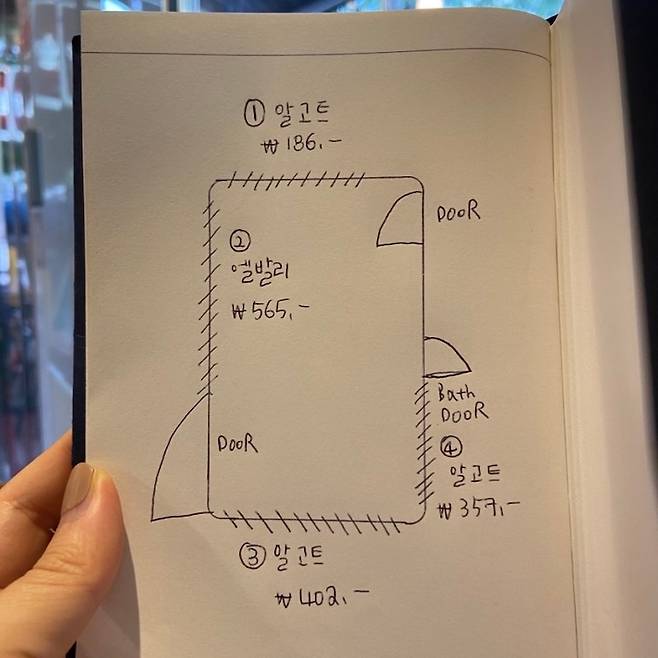 ① 알고트
₩186.-
DOOR
②
엘발리
₩565.-
Bath
DOOR
DOOR
④
알고트
₩357.-
③ 알고트
₩402.-